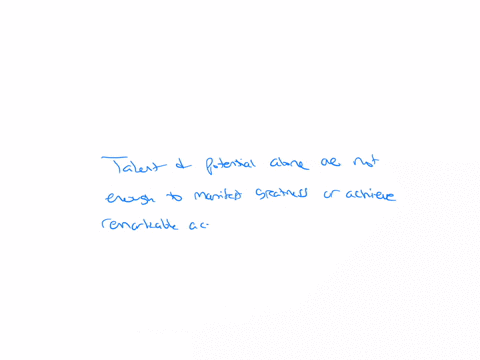 Talent & potential alone are not
enough to manifest greatness or achieve
remarkable ac